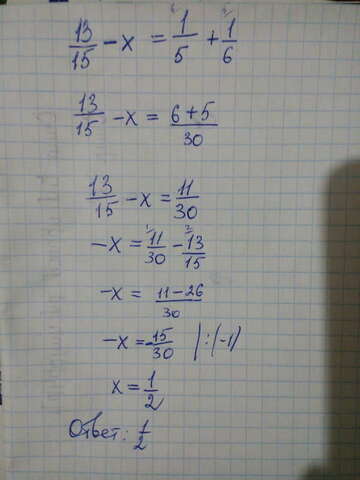 13/15 - x = 1/5 + 1/6
13/15 - x = (6+5)/30
13/15 - x = 11/30
-x = 11/30 - 13/15
-x = (11-26)/30
-x = -15/30 |:(-1)
x = 1/2
Ответ: 1/2